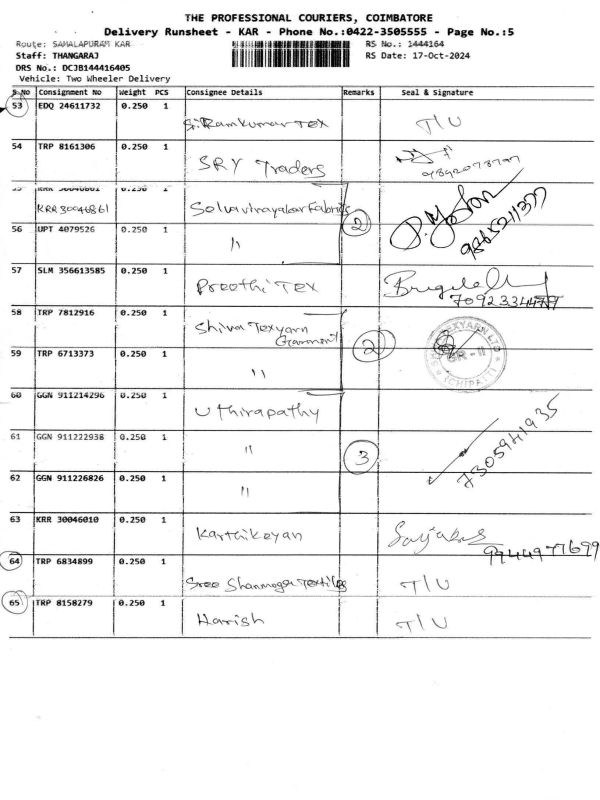 THE PROFESSIONAL COURIERS, COIMBATORE
Delivery Runsheet - KAR - Phone No.:0422-3505555 - Page No.:5
Route: SAMALAPURAM KAR RS No.: 1444164
Staff: THANGARAJ RS Date: 17-Oct-2024
DRS No.: DCJB144416405
Vehicle: Two Wheeler Delivery
S.No Consignment No Weight PCS Consignee Details Remarks Seal & Signature
53 EDQ 24611732 0.250 1
Sri Ramkumar Tex T/U
54 TRP 8161306 0.250 1
SRY Traders
55 KRR 30046861 0.250 1
KRR 30046861 Selvavinayakar Fabrics 2 9865211377
56 UPT 4079526 0.250 1
"
57 SLM 356613585 0.250 1
Preethi Tex
58 TRP 7812916 0.250 1
Shiva Texyarn
Garment 2
59 TRP 6713373 0.250 1
"
60 GGN 911214296 0.250 1
Uthirapathy
61 GGN 911222938 0.250 1
" 3 7305941935
62 GGN 911226826 0.250 1
"
63 KRR 30046010 0.250 1
Karthikeyan 9944977699
64 TRP 6834899 0.250 1
Sree Shanmuga Textiles T/U
65 TRP 8158279 0.250 1
Harish T/U